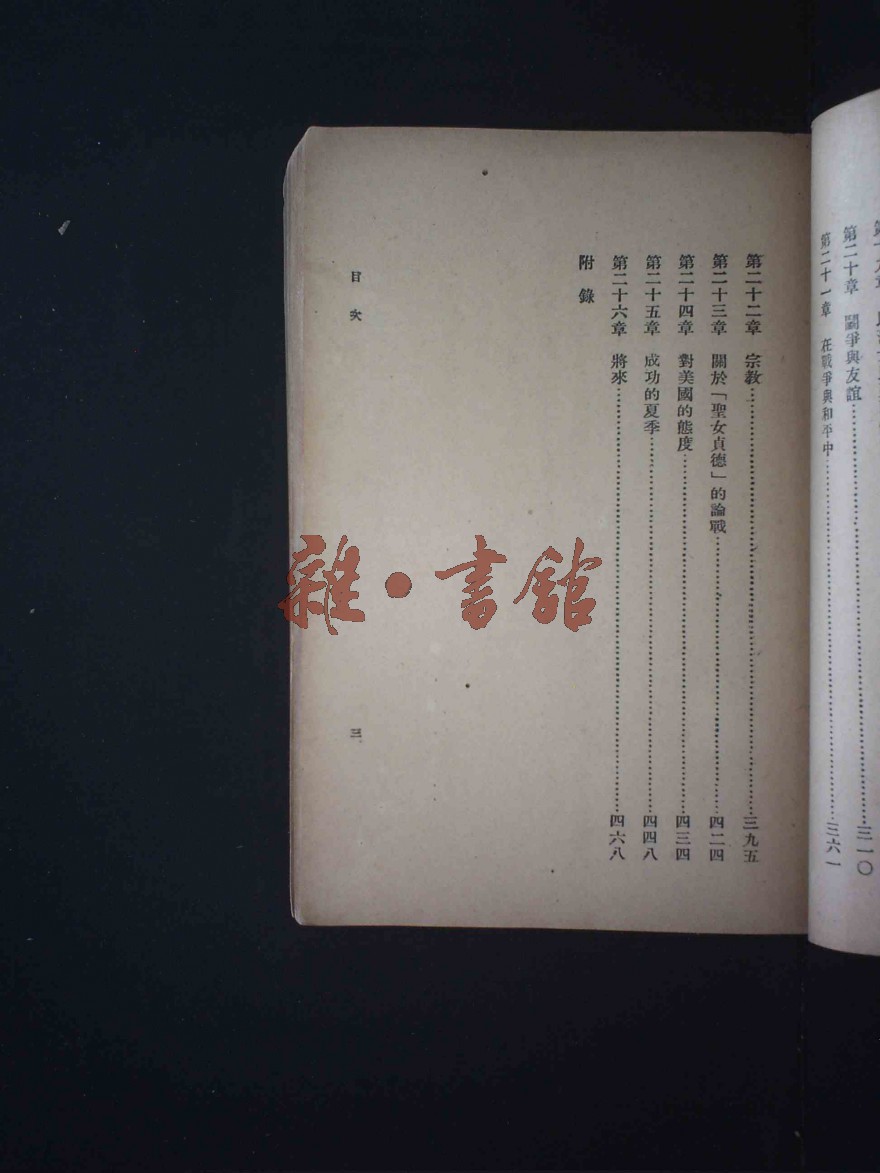 第二十章　鬭爭與友誼…………三一〇
第二十一章　在戰爭與和平中…………三六一
第二十二章　宗教…………三九五
第二十三章　關於「聖女貞德」的論戰…………四二四
第二十四章　對美國的態度…………四三四
第二十五章　成功的夏季…………四四八
第二十六章　將來…………四六八
附錄
目次
三
雜·書館